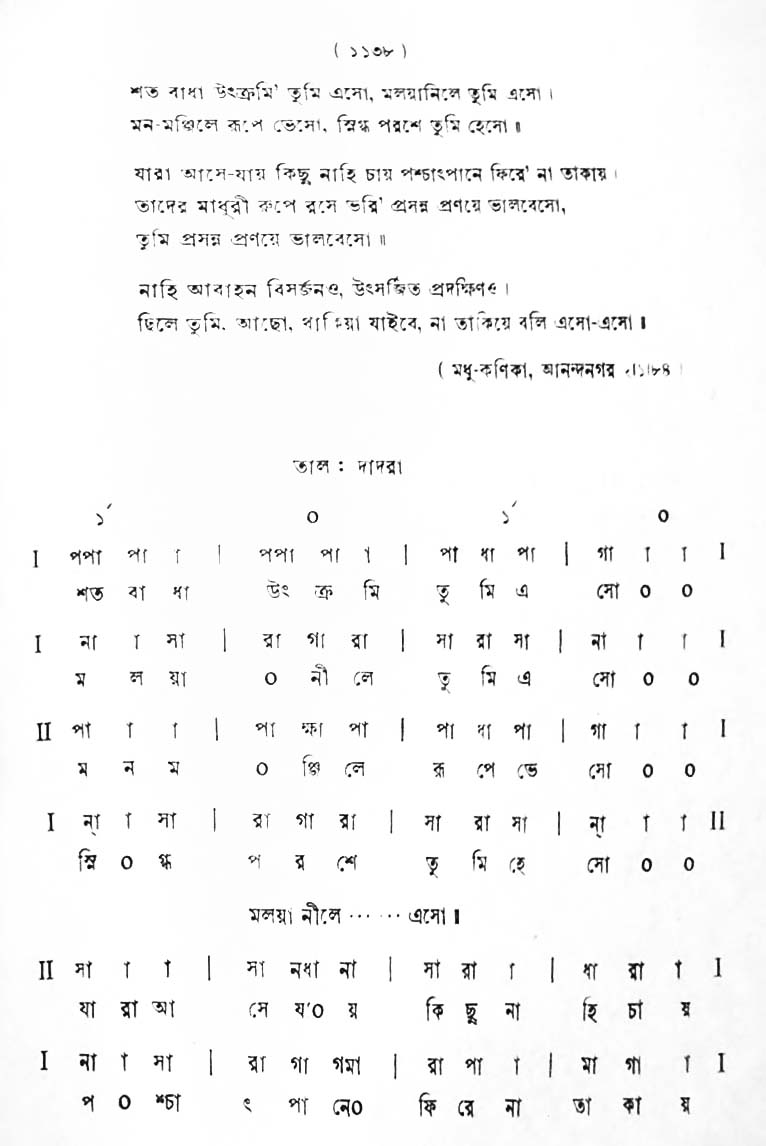 ( ১১৩৮ )
শত বাধা উৎক্রমি' তুমি এসো, মলয়ানিলে তুমি এসো।
মন-মঞ্জিলে রূপে ভেসো, স্নিগ্ধ পরশে তুমি হেসো॥
যারা আসে-যায় কিছু নাহি চায় পশ্চাৎপানে ফিরে' না তাকায়।
তাদের মাধুরী রূপে রসে ভরি' প্রসন্ন প্রণয়ে ভালবেসো,
তুমি প্রসন্ন প্রণয়ে ভালবেসো॥
নাহি আবাহন বিসর্জনও, উৎসর্জিত প্রদক্ষিণও।
ছিলে তুমি, আছো, থাকিয়া যাইবে, না তাকিয়ে বলি এসো-এসো॥
( মধু-কণিকা, আনন্দনগর
তাল : দাদরা
১´ ০ ১´ ০
I পপা পা া | পপা পা া | পা ধা পা | গা া া I
শত বা ধা উৎ ক্র মি তু মি এ সো ০ ০
I না া সা | রা গা রা | সা রা সা | না া া I
ম ল য়া ০ নী লে তু মি এ সো ০ ০
II পা া া | পা ক্ষা পা | পা ধা পা | গা া া I
ম ন ম ০ ঞ্জি লে রূ পে ভে সো ০ ০
I ন্া া সা | রা গা রা | সা রা সা | ন্া া া II
স্নি ০ গ্ধ প র শে তু মি হে সো ০ ০
মলয়া নীলে ··· ··· এসো॥
II সা া া | সা নধা না | সা রা া | ধা রা া I
যা রা আ সে য'০ য় কি ছু না হি চা য়
I না া সা | রা গা গমা | রা পা া | মা গা া I
প ০ শ্চা ৎ পা নে০ ফি রে না তা কা য়